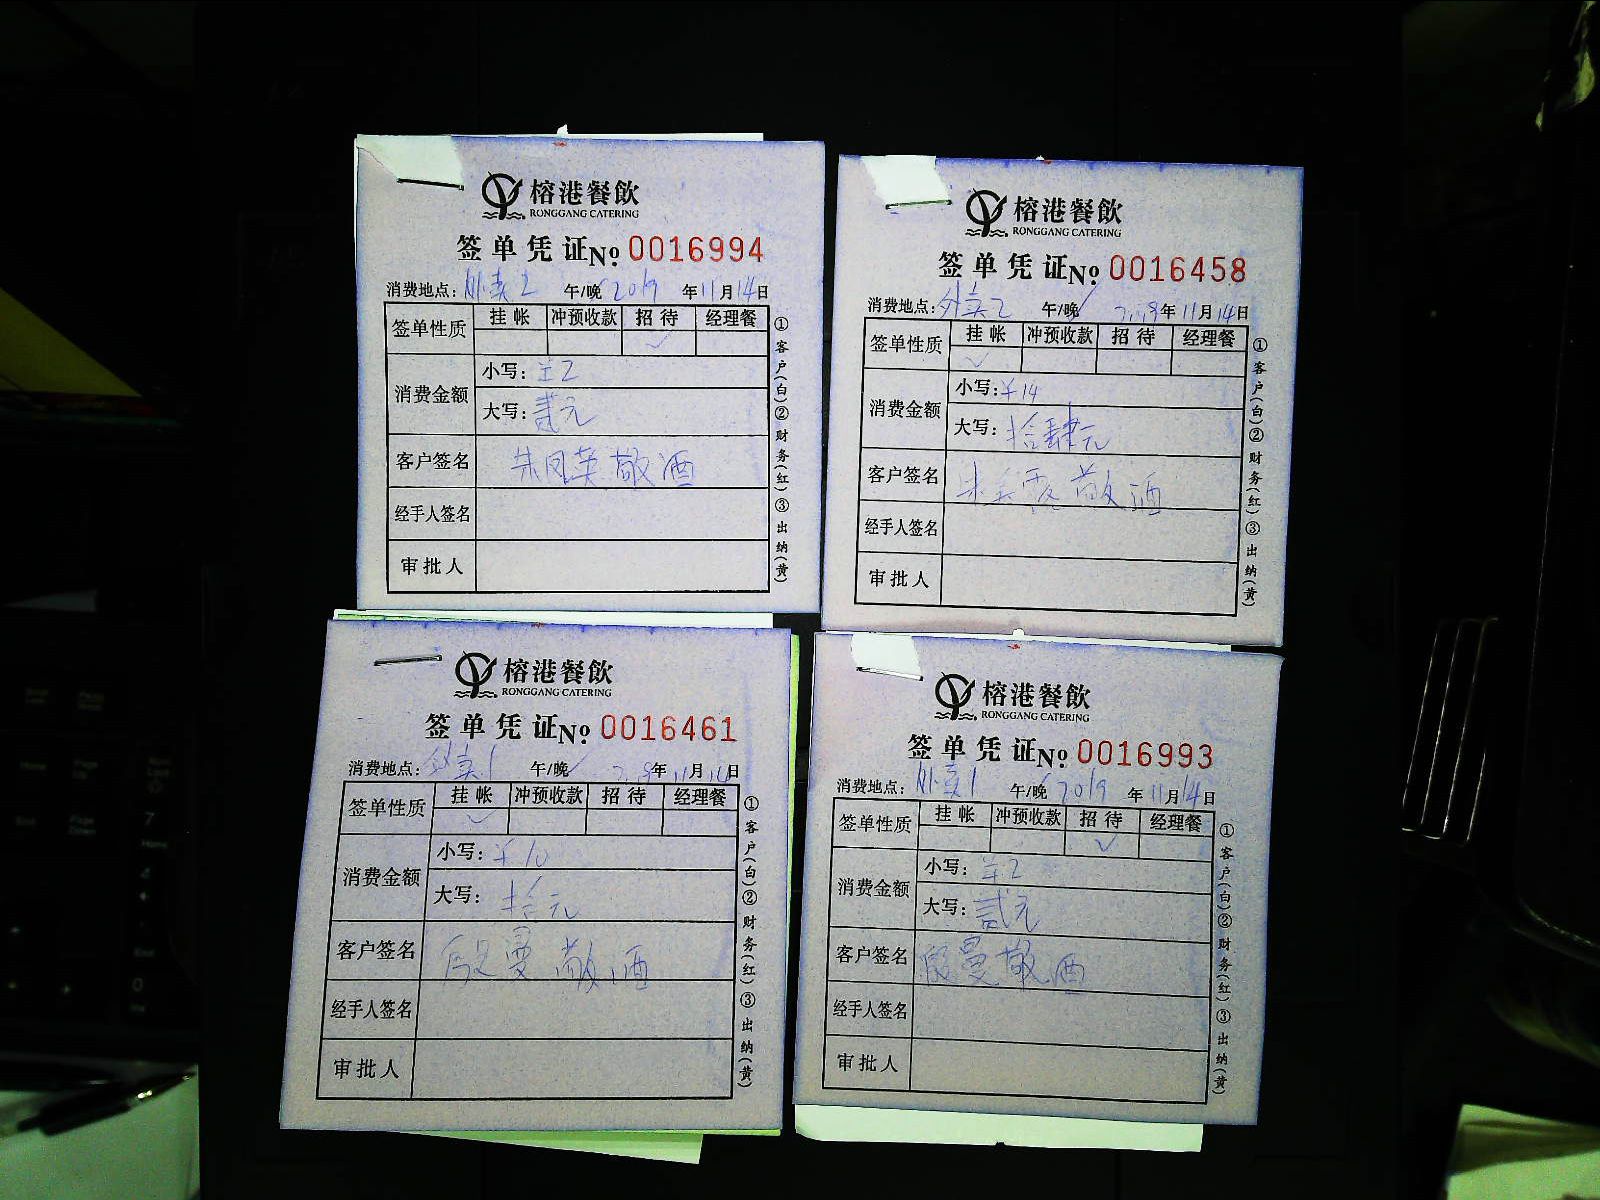 榕港餐飲
RONGGANG CATERING
签单凭证No. 0016994
消费地点: 外卖2 午/晚 2019年11月14日
签单性质 挂帐 冲预收款 招待 经理餐
✓
消费金额 小写: ¥2
大写: 贰元
客户签名 朱凤英敬酒
经手人签名
审批人
①客户(白)②财务(红)③出纳(黄)
榕港餐飲
RONGGANG CATERING
签单凭证No. 0016458
消费地点: 外卖2 午/晚 2019年11月14日
签单性质 挂帐 冲预收款 招待 经理餐
✓
消费金额 小写: ¥14
大写: 拾肆元
客户签名 敬酒
经手人签名
审批人
①客户(白)②财务(红)③出纳(黄)
榕港餐飲
RONGGANG CATERING
签单凭证No. 0016461
消费地点: 外卖1 午/晚 2019年11月14日
签单性质 挂帐 冲预收款 招待 经理餐
✓
消费金额 小写: ¥10
大写: 拾元
客户签名 殷曼敬酒
经手人签名
审批人
①客户(白)②财务(红)③出纳(黄)
榕港餐飲
RONGGANG CATERING
签单凭证No. 0016993
消费地点: 外卖1 午/晚 2019年11月14日
签单性质 挂帐 冲预收款 招待 经理餐
✓
消费金额 小写: ¥2
大写: 贰元
客户签名 殷曼敬酒
经手人签名
审批人
①客户(白)②财务(红)③出纳(黄)